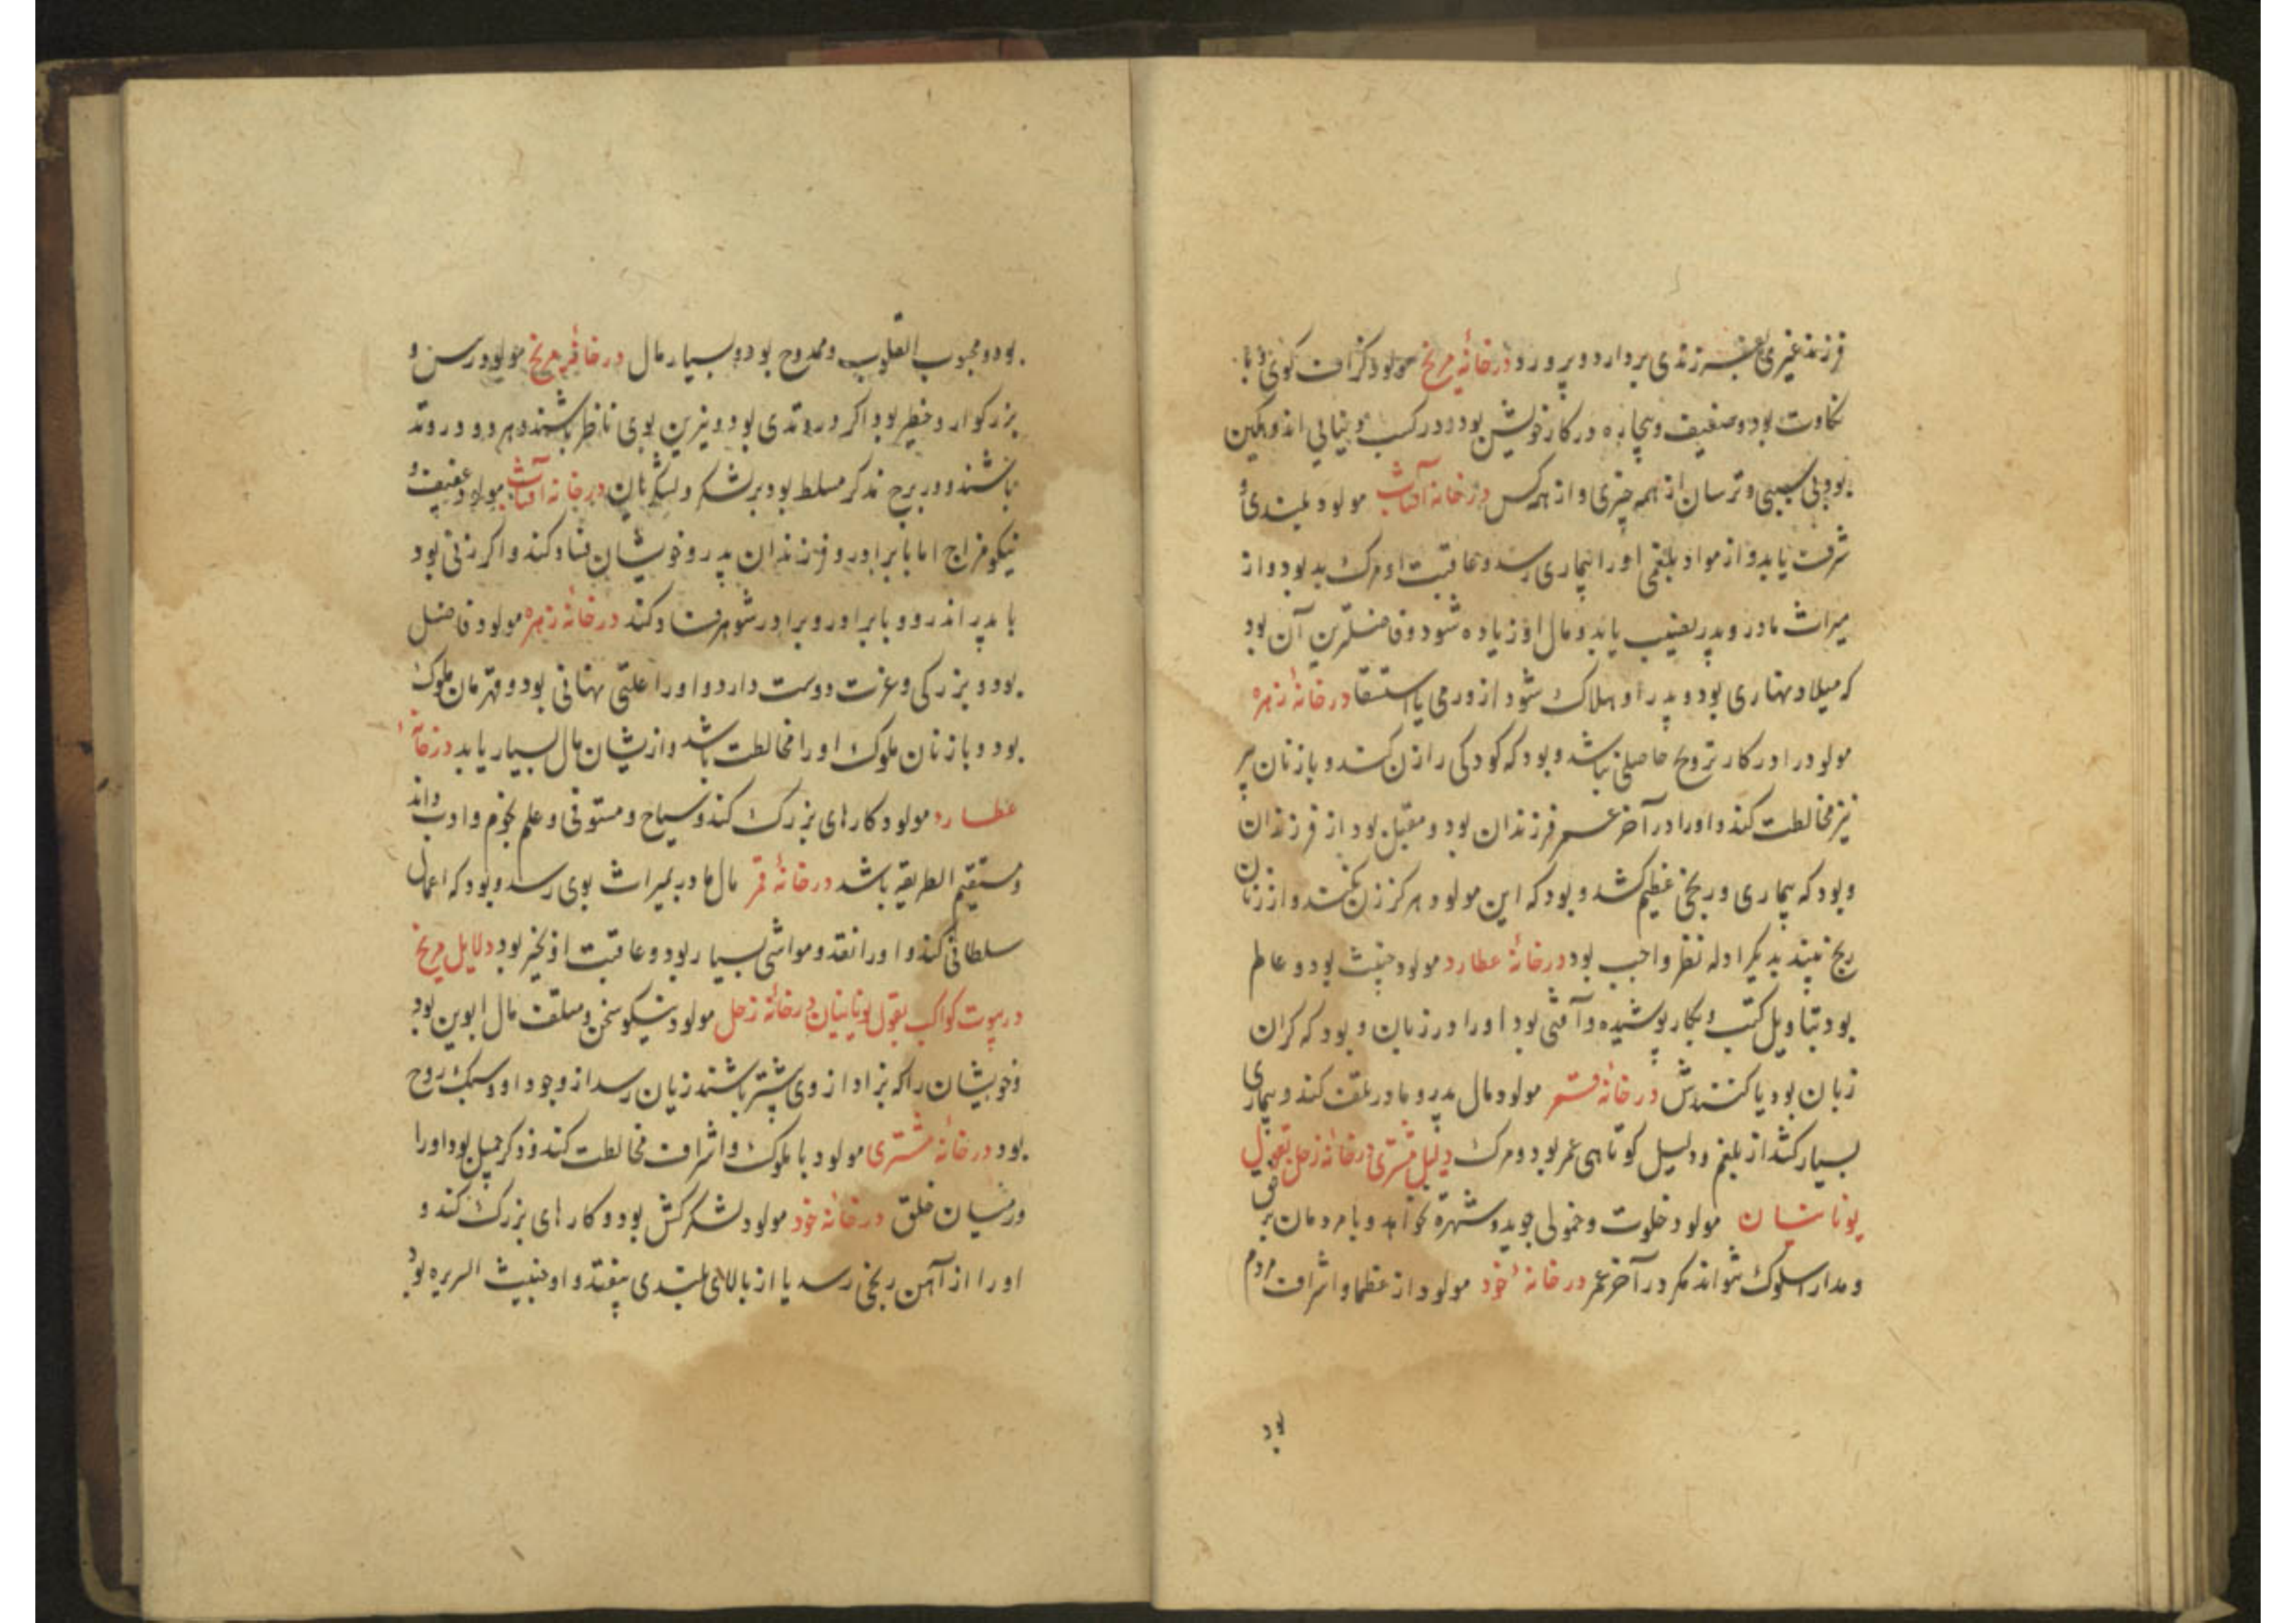 فرزند غیری بفرزندی بردارد و بپرورد در خانهٔ مریخ مولود کزاف کوی و با
نکاوت بود و ضعیف و بیچاره در کار خویش بود و در کسب و بینایی اندوهکین
بود بی سببی و ترسان از همه چیزی و از همه کس در خانهٔ آفتاب مولود بلندی و
شرف یابد و از مواد بلغمی او را بیماری رسد و عاقبت او مرک بد بود و از
میراث مادر و پدر نصیب یابد و مال او زیاده شود و فاضلترین آن بود
که میلاد نهاری بود و پدر او هلاک شود از ورمی یا استسقا در خانهٔ زهره
مولود را در کار تزویج حاصلی نباشد و بود که کودکی را زن کند و با زنان پیر
نیز مخالطت کند و او را در آخر عمر فرزندان بود و مقبل بود از فرزندان
و بود که بیماری و رنجی عظیم کشد و بود که این مولود هرکز زن نکند و از زنان
رنج بیند بدیکر ادله نظر واجب بود در خانهٔ عطارد مولود خبیث بود و عالم
بود بتاویل کتب و بکار پوشیده و آفتی بود او را در زبان و بود که کران
زبان بود یا کندهوش در خانهٔ قمر مولود مال پدر و مادر تلف کند و بیماری
بسیار کشد از بلغم و دلیل کوتاهی عمر بود و مرک دلیل مشتری در خانهٔ زحل بقول
یونانیان مولود خلوت و خمولی جوید و شهرة نخواهد و با مردمان برفق
و مدارا سلوک نتواند مکر در آخر عمر در خانهٔ خود مولود از عظما و اشراف مردم
بود
بود و محبوب القلوب و ممدوح بود و بسیار مال در خانهٔ مریخ مولود رسن و
بزرکوار و خطیر بود اکر در وتدی بود و نیرین بوی ناظر باشند و هر دو در وتد
باشند و در برج مذکر مسلط بود بر لشکر و لشکریان در خانهٔ آفتاب مولود عفیف و
نیکو مزاج اما با برادر و فرزندان پدر و خویشان فساد کند و اکر زنی بود
با پدر اندر و با برادر و برادر شوهر فساد کند در خانهٔ زهره مولود فاضل
بود و بزرکی و عزت دوست دارد و او را علتی نهانی بود و قهرمان ملوک
بود و با زنان ملوک او را مخالطت باشد و ازیشان مال بسیار یابد در خانهٔ
عطارد مولود کارهای بزرک کند و سیاح و مستوفی و علم نجوم و ادب داند
و مستقیم الطریقه باشد در خانهٔ قمر مال مادر بمیراث بوی رسد و بود که اعمال
سلطانی کند و او را نقد و مواشی بسیار بود و عاقبت او بخیر بود دلایل مریخ
در بیوت کواکب بقول یونانیان در خانهٔ زحل مولود نیکو سخن و متلف مال ابوین بود
و خویشان را که بزاد از وی پیشتر باشند زیان رسد از وجود او و سبک روح
بود در خانهٔ مشتری مولود با ملوک و اشراف مخالطت کند و ذکر جمیل بود او را
در میان خلق در خانهٔ خود مولود لشکرکش بود و کارهای بزرک کند و
او را از آهن رنجی رسد یا از بالای بلندی بیفتد و او خبیث السریره بود